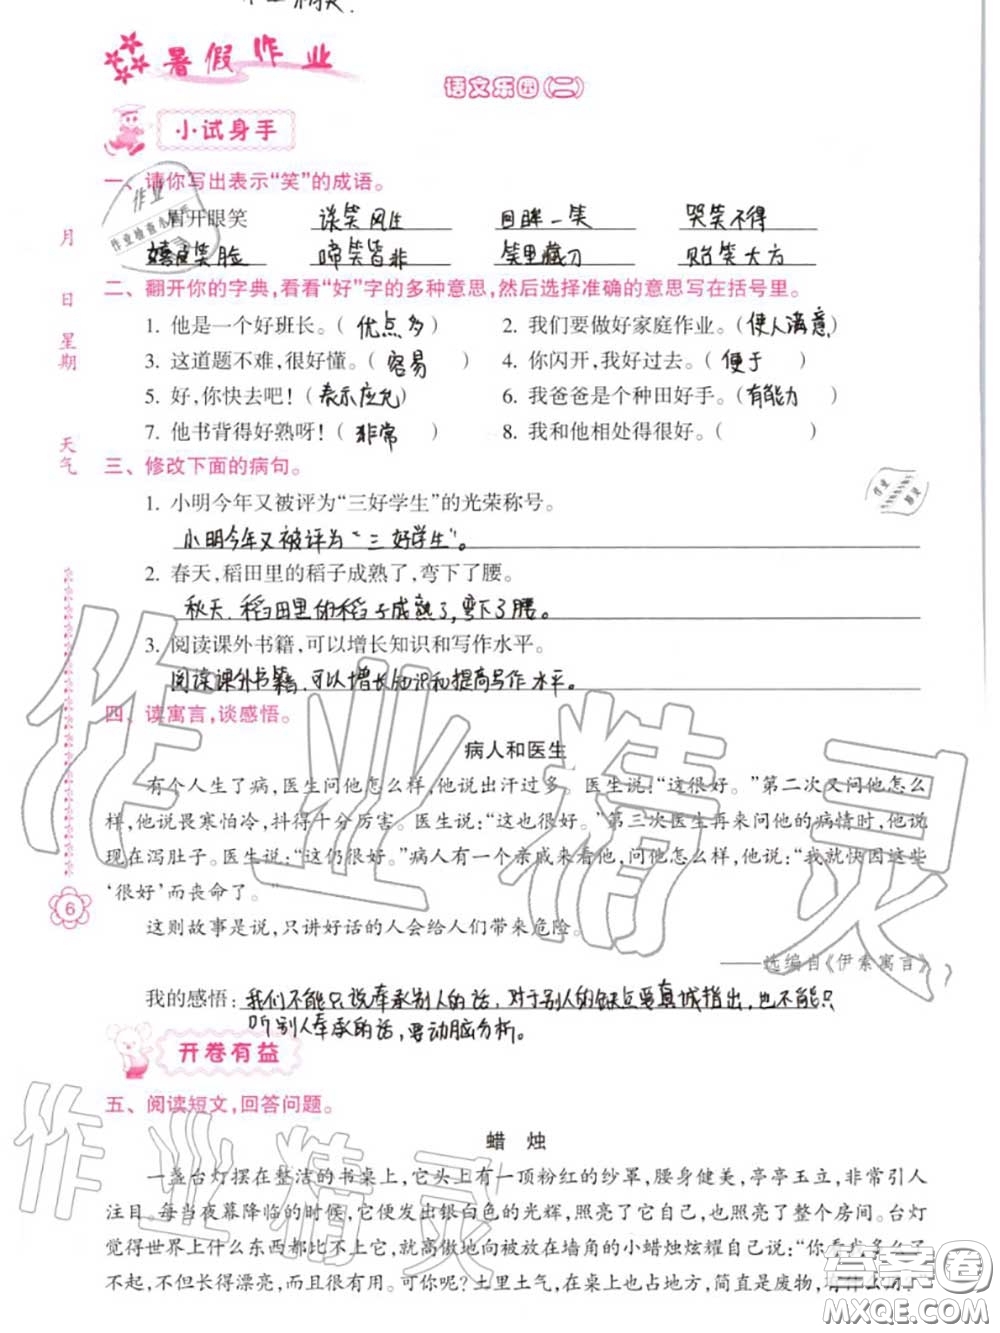 暑假作业
语文乐园(二)
小试身手
一、请你写出表示“笑”的成语。
眉开眼笑 谈笑风生 回眸一笑 哭笑不得
嬉皮笑脸 啼笑皆非 笑里藏刀 贻笑大方
二、翻开你的字典,看看“好”字的多种意思,然后选择准确的意思写在括号里。
1. 他是一个好班长。( 优点多 ) 2. 我们要做好家庭作业。( 使人满意 )
3. 这道题不难,很好懂。( 容易 ) 4. 你闪开,我好过去。( 便于 )
5. 好,你快去吧!( 表示应允 ) 6. 我爸爸是个种田好手。( 有能力 )
7. 他书背得好熟呀!( 非常 ) 8. 我和他相处得很好。( )
三、修改下面的病句。
1. 小明今年又被评为“三好学生”的光荣称号。
小明今年又被评为“三好学生”。
2. 春天,稻田里的稻子成熟了,弯下了腰。
秋天,稻田里的稻子成熟了,弯下了腰。
3. 阅读课外书籍,可以增长知识和写作水平。
阅读课外书籍,可以增长知识和提高写作水平。
四、读寓言,谈感悟。
病人和医生
有个人生了病,医生问他怎么样,他说出汗过多。医生说:“这很好。”第二次又问他怎么
样,他说畏寒怕冷,抖得十分厉害。医生说:“这也很好。”第三次医生再来问他的病情时,他说
现在泻肚子。医生说:“这仍很好。”病人有一个亲戚来看他,问他怎么样,他说:“我就快因这些
‘很好’而丧命了。”
这则故事是说,只讲好话的人会给人们带来危险。
——选编自《伊索寓言》
我的感悟:我们不能只说奉承别人的话,对于别人的缺点要真诚指出,也不能只
听别人奉承的话,要动脑分析。
开卷有益
五、阅读短文,回答问题。
蜡 烛
一盏台灯摆在整洁的书桌上,它头上有一顶粉红的纱罩,腰身健美,亭亭玉立,非常引人
注目。每当夜幕降临的时候,它便发出银白色的光辉,照亮了它自己,照亮了整个房间。台灯
觉得世界上什么东西都比不上它,就高傲地向被放在墙角的小蜡烛炫耀自己说:“你看我多么了
不起,不但长得漂亮,而且很有用。可你呢?土里土气,在桌上也占地方,简直是废物,有什么用?
月
日
星期
天气
6
作业
作业检查小
作业精灵
作业精灵
答案圈
MXQE.COM